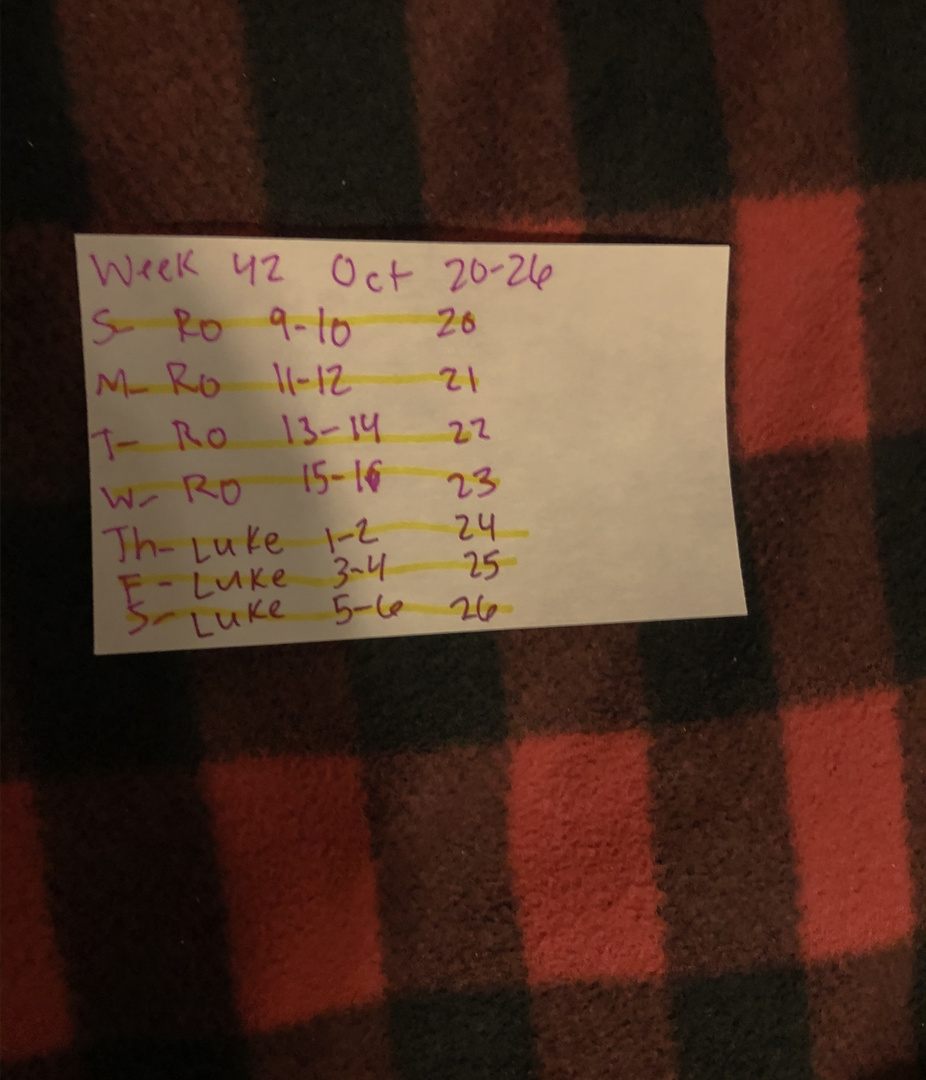 Week 42 Oct 20-26
S- Ro 9-10 20
M- Ro 11-12 21
T- Ro 13-14 22
W- Ro 15-16 23
Th- Luke 1-2 24
F- Luke 3-4 25
S- Luke 5-6 26